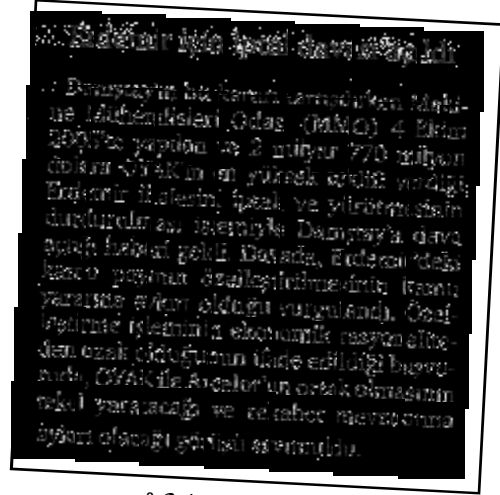 Erdemir için iptal davası
Danıştay'ın bu kararı Maki-
ne Mühendisleri Odası (MMO) 4 Ekim
2005'te yapılan ve 2 milyar 770 milyon
dolarla OYAK'ın en yüksek teklifi verdiği
Erdemir ihalesini iptali ve yürütmesinin
durdurulması istemiyle Danıştay'a dava
açtığı haberi geldi. Davada, Erdemir'deki
kamu payının özelleştirilmesinin kamu
yararına aykırı olduğu vurgulandı. Özel-
leştirme işleminin ekonomik rasyonalite-
den uzak olduğunun ifade edildiği başvu-
ruda, OYAK ile Arcelor'un ortak olmasının
tekel yaratacağı ve rekabet mevzuatına
aykırı olacağı görüşü savunuldu.